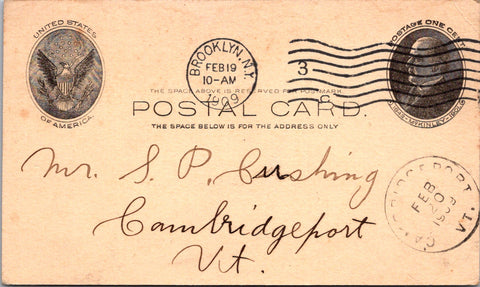 UNITED STATES
OF AMERICA.
BROOKLYN, N.Y.
FEB 19
10-AM
1909
3
POSTAGE ONE CENT
McKINLEY
THE SPACE ABOVE IS RESERVED FOR POSTMARK.
POSTAL CARD.
THE SPACE BELOW IS FOR THE ADDRESS ONLY
Mr. S. P. Cushing
Cambridgeport
Vt.
CAMBRIDGEPORT,
FEB
20
1909
VT.